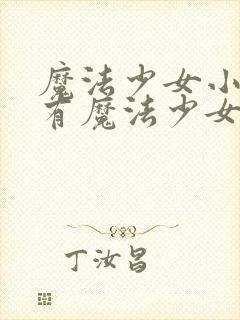 魔法少女小
有魔法少女
丁汝昌